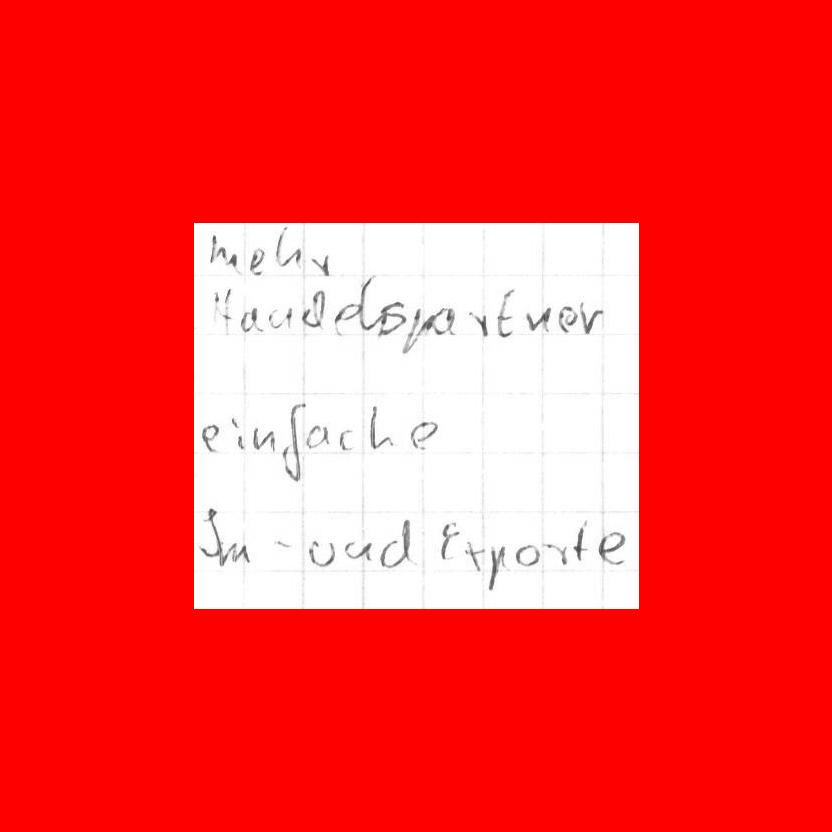 mehr
Handelspartner
einfache
Im- und Exporte